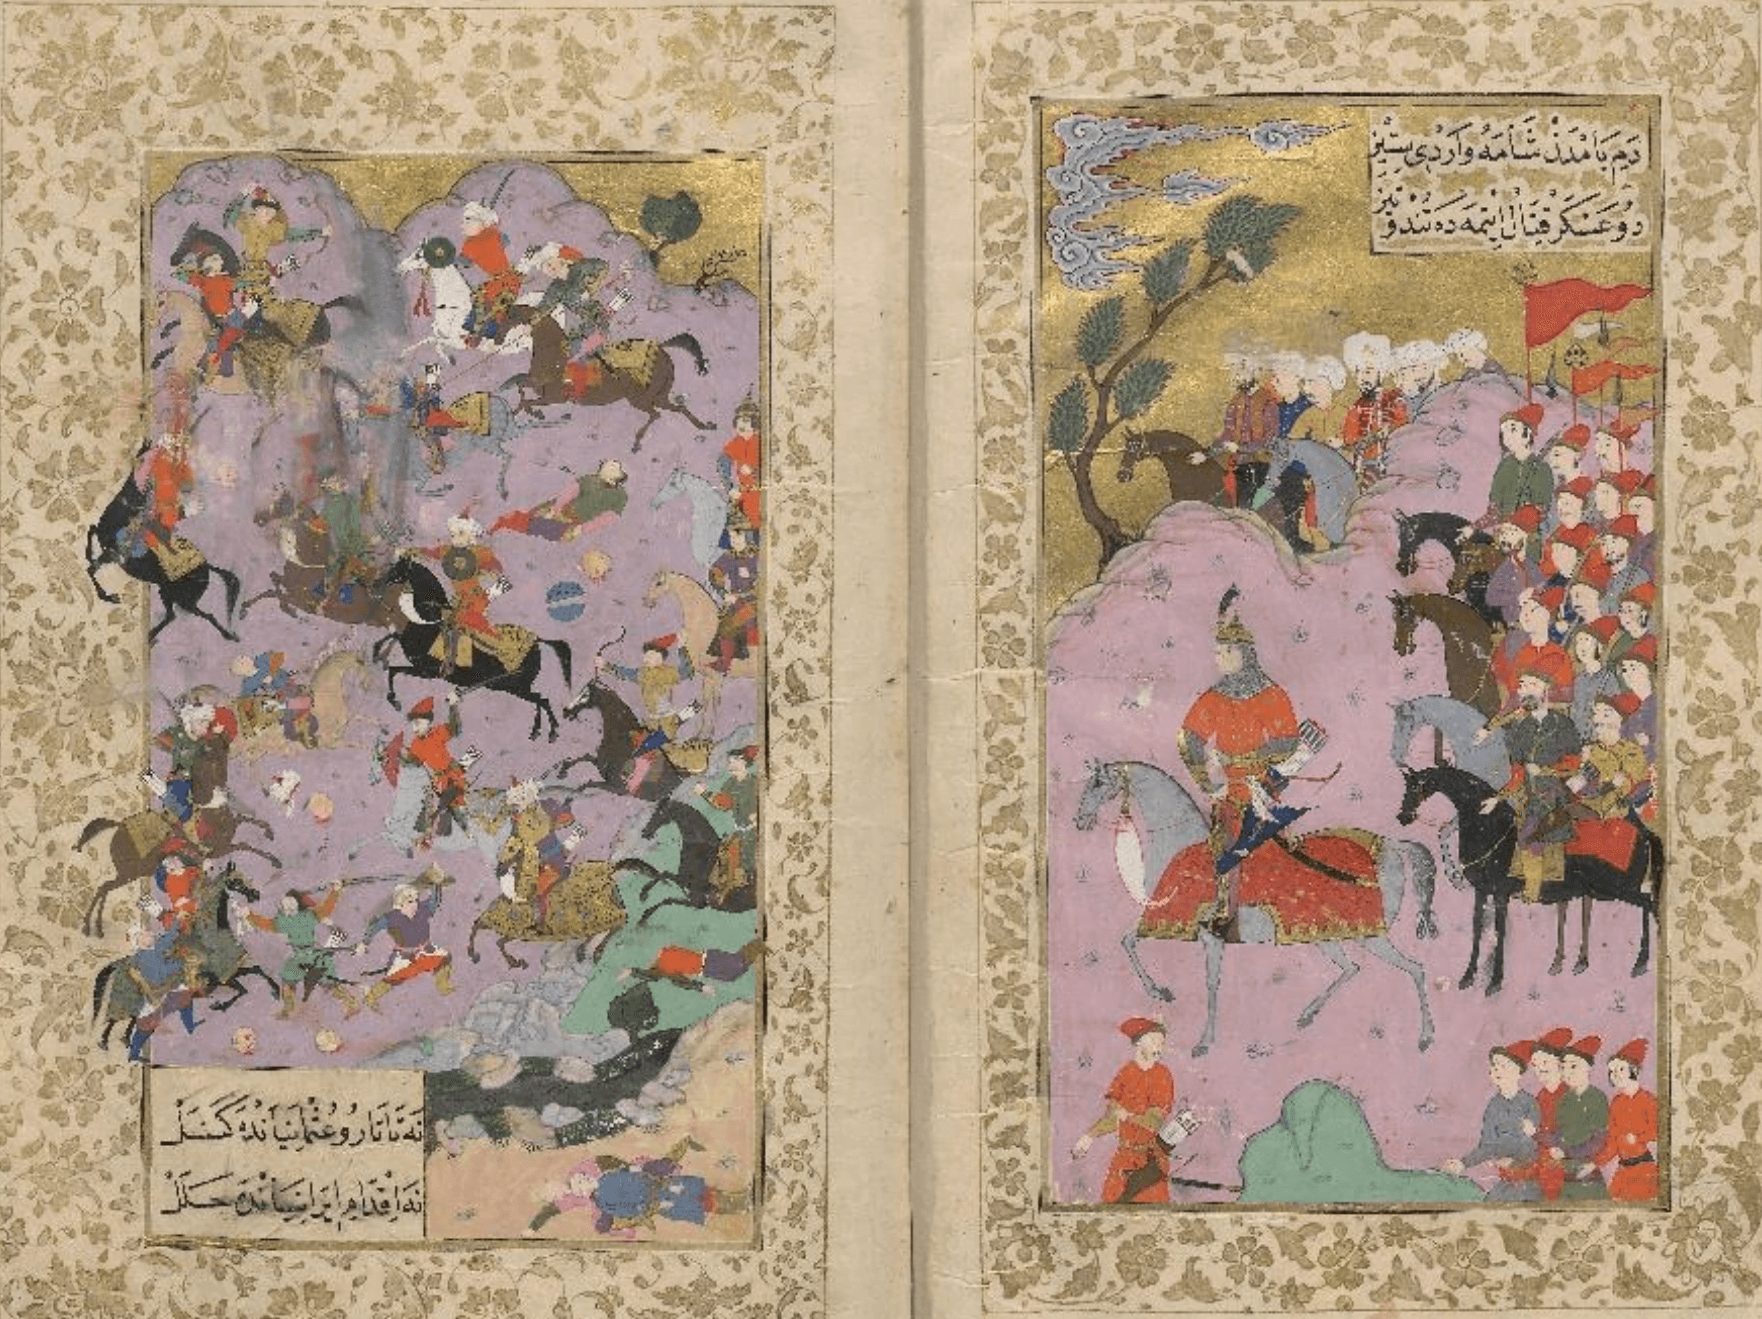 دم بامدادن شامه واردی ستیز
دو عسکر قتال ایتمه ده تند و تیز
نه تاتار و عثمانیانده کسل
نه اقدام ایرانیانده خلل